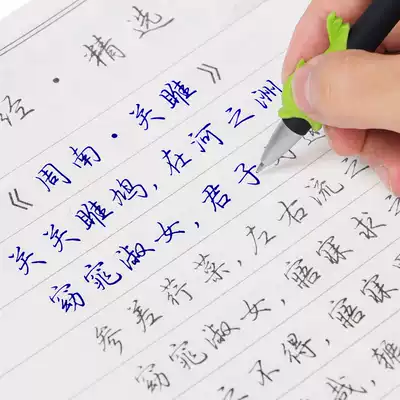 经·精选
《周南·关雎》
关关雎鸠，在河之洲
窈窕淑女，君子
参差荇菜，左右流之
窈窕淑女，寤寐求之
不得，寤寐
哉，辗